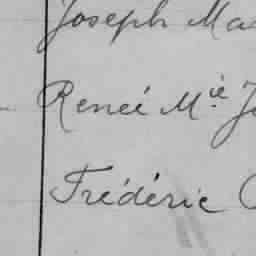 Joseph Ma
Reneé M.ie J
Frédéric